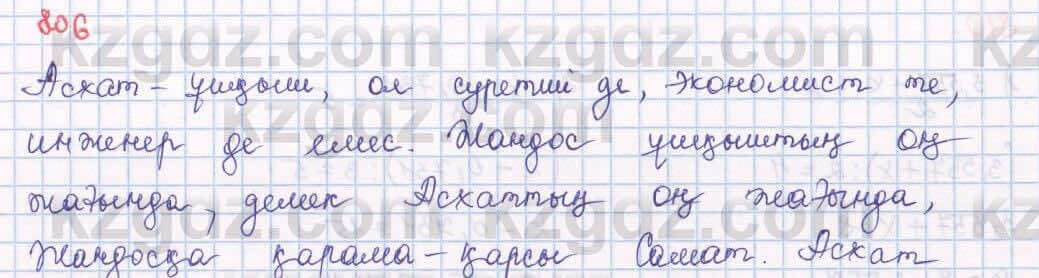 806
kzgdz.com kzgdz.com
Асхат – ұшқыш, ол суретші де, экономист те,
инженер де емес. Жандос ұшқыштың оң
kzgdz.com kzgdz.com
жағында, демек Асхаттың оң жағында,
Жандосқа қарама-қарсы Самат. Асхат
kzgdz.com kzgdz.com